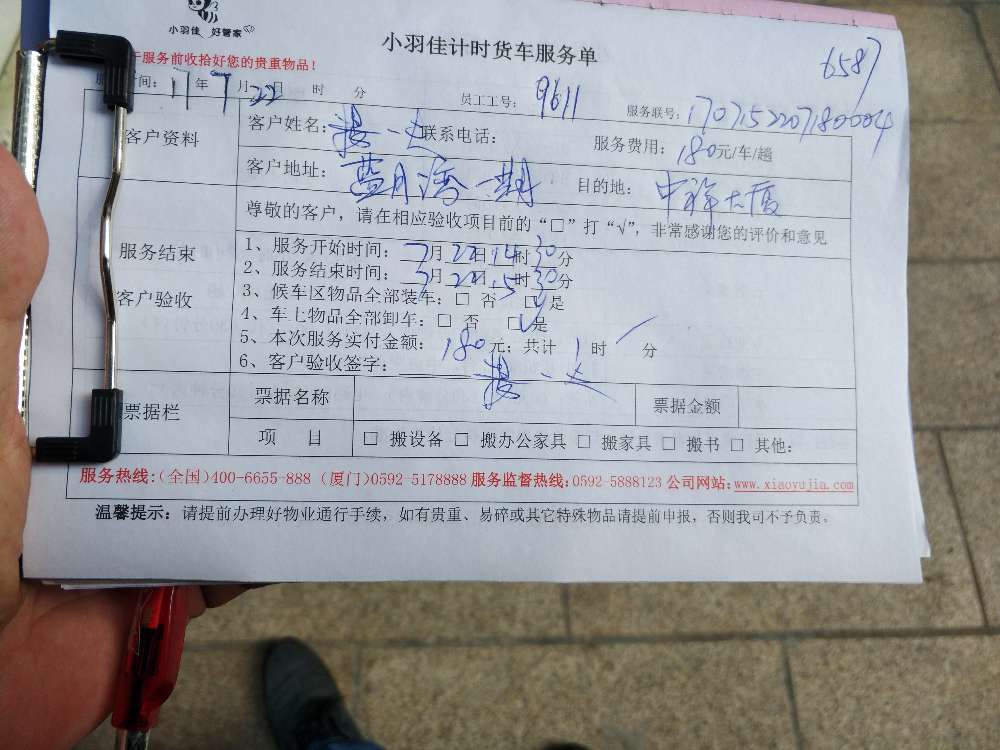 小羽佳 好管家
小羽佳计时货车服务单
6587
服务前收拾好您的贵重物品！
间：17年7月22日 时 分 员工工号：9611 服务联号：1707152207180004
客户资料
客户姓名： 联系电话： 服务费用：180元/车/趟
客户地址：蓝月湾一期 目的地：中祥大厦
尊敬的客户，请在相应验收项目前的“□”打“√”，非常感谢您的评价和意见
服务结束
客户验收
1、服务开始时间：7月22日14时30分
2、服务结束时间：7月22日15时30分
3、候车区物品全部装车：□ 否 □√是
4、车上物品全部卸车：□ 否 □√是
5、本次服务实付金额：180元；共计 1 时 / 分
6、客户验收签字：
票据栏
票据名称 票据金额
项 目 □ 搬设备 □ 搬办公家具 □ 搬家具 □ 搬书 □ 其他：
服务热线：(全国)400-6655-888 (厦门)0592-5178888 服务监督热线：0592-5888123 公司网站：www.xiaoyujia.com
温馨提示：请提前办理好物业通行手续，如有贵重、易碎或其它特殊物品请提前申报，否则我司不予负责。